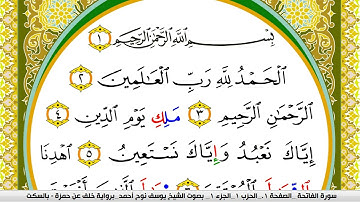 بِسْمِ ٱللَّهِ ٱلرَّحْمَٰنِ ٱلرَّحِيمِ ١
ٱلْحَمْدُ لِلَّهِ رَبِّ ٱلْعَٰلَمِينَ ٢
ٱلرَّحْمَٰنِ ٱلرَّحِيمِ ٣ مَلِكِ يَوْمِ ٱلدِّينِ ٤
إِيَّاكَ نَعْبُدُ وَإِيَّاكَ نَسْتَعِينُ ٥ ٱهْدِنَا
سورة الفاتحة _ الصفحة ١ _ الحزب ١ _ الجزء ١ _ بصوت الشيخ يوسف نوح أحمد _ برواية خلف عن حمزة - بالسكت